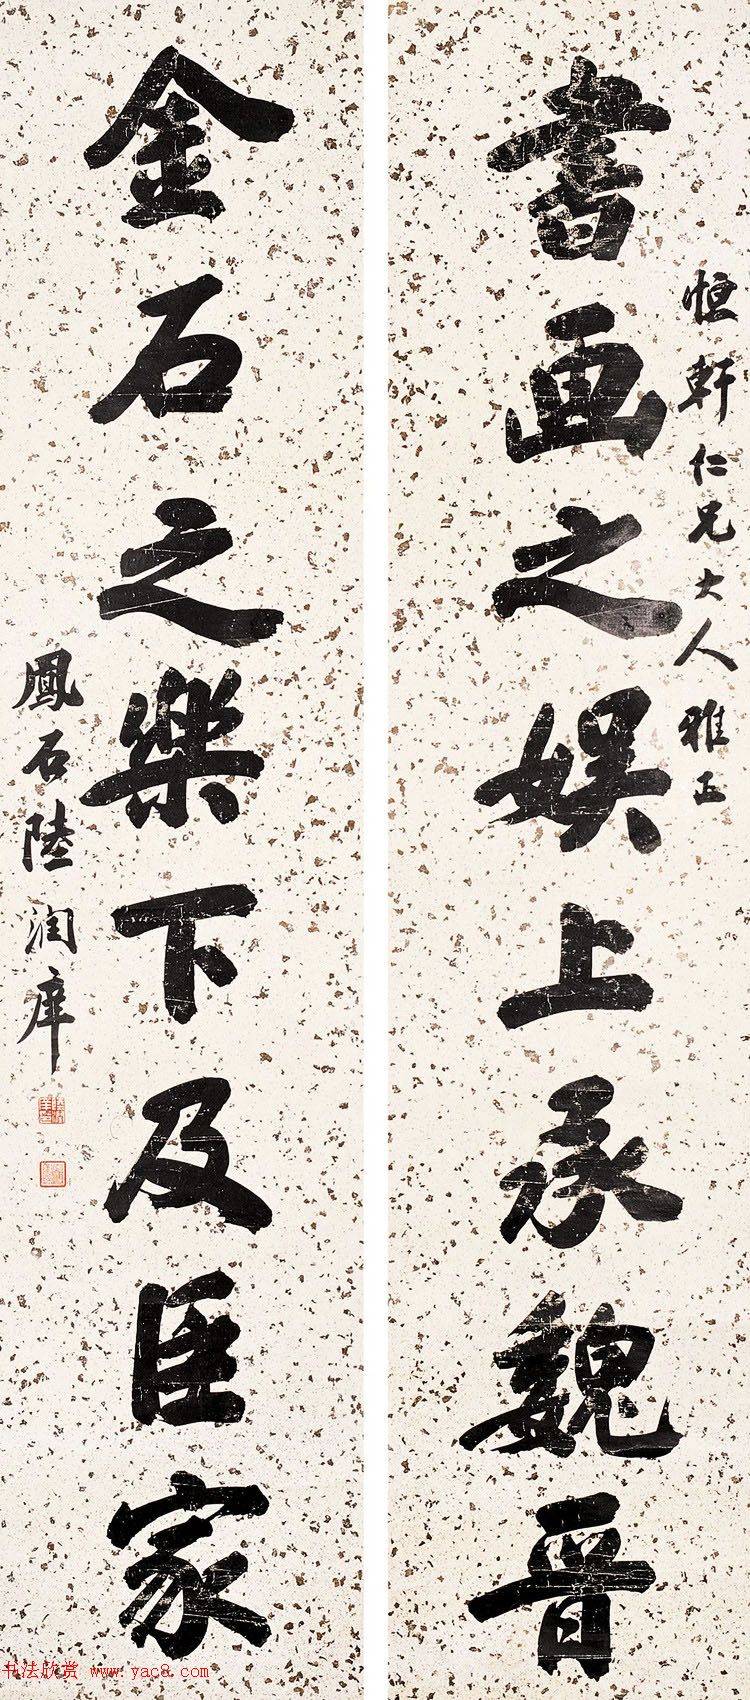 恒軒仁兄大人雅正
書画之娱上承魏晉
金石之樂下及臣家
鳳石陸润庠
书法欣赏 www.yac8.com